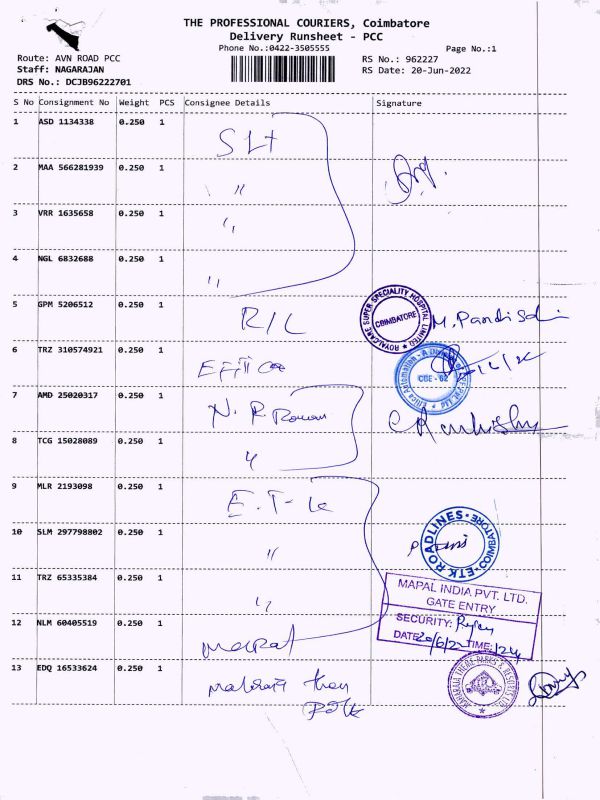 THE PROFESSIONAL COURIERS, Coimbatore
Delivery Runsheet - PCC
Phone No.:0422-3505555
Page No.:1
Route: AVN ROAD PCC
RS No.: 962227
Staff: NAGARAJAN
RS Date: 20-Jun-2022
DRS No.: DCJB96222701
S No Consignment No Weight PCS Consignee Details Signature
1 ASD 1134338 0.250 1 SLT
2 MAA 566281939 0.250 1 "
3 VRR 1635658 0.250 1 "
4 NGL 6832688 0.250 1 "
5 GPM 5206512 0.250 1 R/C ROYALCARE SUPER SPECIALITY HOSPITAL LIMITED COIMBATORE M. Pandi
6 TRZ 310574921 0.250 1 Effica Effica Automation CBE - 62
7 AMD 25020317 0.250 1 N. R.
8 TCG 15028089 0.250 1 "
9 MLR 2193098 0.250 1 E.T-k
10 SLM 297798802 0.250 1 " ETK ROADLINES COIMBATORE
11 TRZ 65335384 0.250 1 "
MAPAL INDIA PVT. LTD.
GATE ENTRY
12 NLM 60405519 0.250 1 SECURITY:
DATE 20/6/22 TIME:
13 EDQ 16533624 0.250 1 MAHARAJA THEME PARKS & RESORTS